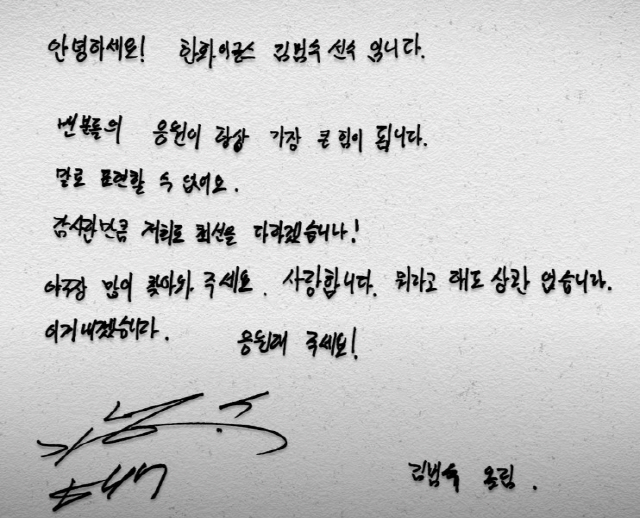 안녕하세요! 한화이글스 김범수 선수 입니다.
팬분들의 응원이 항상 가장 큰 힘이 됩니다.
말로 표현할 수 없어요.
감사한만큼 저희도 최선을 다하겠습니다!
야구장 많이 찾아와 주세요. 사랑합니다. 뭐라고 해도 상관 없습니다.
이겨내겠습니다. 응원해 주세요!
김범수 올림.